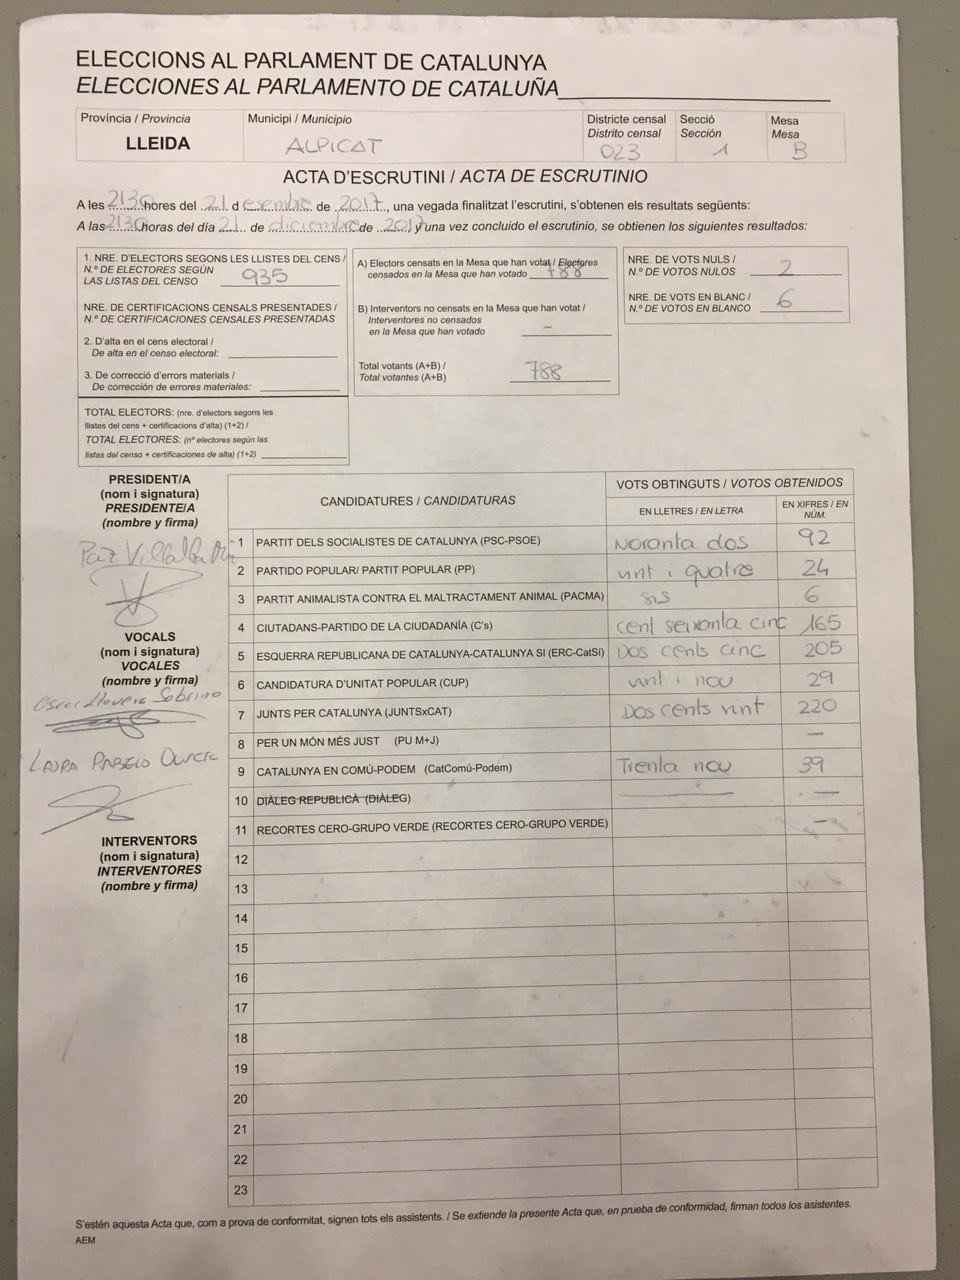 ELECCIONS AL PARLAMENT DE CATALUNYA
ELECCIONES AL PARLAMENTO DE CATALUÑA
Província / Provincia
LLEIDA
Municipi / Municipio
ALPICAT
Districte censal
Distrito censal
023
Secció
Sección
1
Mesa
Mesa
B
ACTA D'ESCRUTINI / ACTA DE ESCRUTINIO
A les 2130 hores del 21 d esembre de 2017, una vegada finalitzat l'escrutini, s'obtenen els resultats següents:
A las 2130 horas del día 21 de diciembre de 2017, y una vez concluido el escrutinio, se obtienen los siguientes resultados:
1. NRE. D'ELECTORS SEGONS LES LLISTES DEL CENS /
N.º DE ELECTORES SEGÚN
LAS LISTAS DEL CENSO 935
NRE. DE CERTIFICACIONS CENSALS PRESENTADES /
N.º DE CERTIFICACIONES CENSALES PRESENTADAS
2. D'alta en el cens electoral /
De alta en el censo electoral:
3. De correcció d'errors materials /
De corrección de errores materiales:
TOTAL ELECTORS: (nre. d'electors segons les
llistes del cens + certificacions d'alta) (1+2) /
TOTAL ELECTORES: (nº electores según las
listas del censo + certificaciones de alta) (1+2)
A) Electors censats en la Mesa que han votat / Electores
censados en la Mesa que han votado 788
B) Interventors no censats en la Mesa que han votat /
Interventores no censados
en la Mesa que han votado -
Total votants (A+B) /
Total votantes (A+B) 788
NRE. DE VOTS NULS /
N.º DE VOTOS NULOS 2
NRE. DE VOTS EN BLANC /
N.º DE VOTOS EN BLANCO 6
PRESIDENT/A
(nom i signatura)
PRESIDENTE/A
(nombre y firma)
Paz Villalba
VOCALS
(nom i signatura)
VOCALES
(nombre y firma)
Oscar Llovera Sobrino
LAURA
INTERVENTORS
(nom i signatura)
INTERVENTORES
(nombre y firma)
CANDIDATURES / CANDIDATURAS
VOTS OBTINGUTS / VOTOS OBTENIDOS
EN LLETRES / EN LETRA
EN XIFRES / EN NÚM.
1 PARTIT DELS SOCIALISTES DE CATALUNYA (PSC-PSOE) Noranta dos 92
2 PARTIDO POPULAR/ PARTIT POPULAR (PP) vint i quatre 24
3 PARTIT ANIMALISTA CONTRA EL MALTRACTAMENT ANIMAL (PACMA) sis 6
4 CIUTADANS-PARTIDO DE LA CIUDADANÍA (C's) cent seixanta cinc 165
5 ESQUERRA REPUBLICANA DE CATALUNYA-CATALUNYA SI (ERC-CatSí) Dos cents cinc 205
6 CANDIDATURA D'UNITAT POPULAR (CUP) vint i nou 29
7 JUNTS PER CATALUNYA (JUNTSxCAT) Dos cents vint 220
8 PER UN MÓN MÉS JUST (PU M+J) —
9 CATALUNYA EN COMÚ-PODEM (CatComú-Podem) Trenta nou 39
10 DIÀLEG REPUBLICÀ (DIÀLEG) — —
11 RECORTES CERO-GRUPO VERDE (RECORTES CERO-GRUPO VERDE) —
12
13
14
15
16
17
18
19
20
21
22
23
S'estén aquesta Acta que, com a prova de conformitat, signen tots els assistents. / Se extiende la presente Acta que, en prueba de conformidad, firman todos los asistentes.
AEM